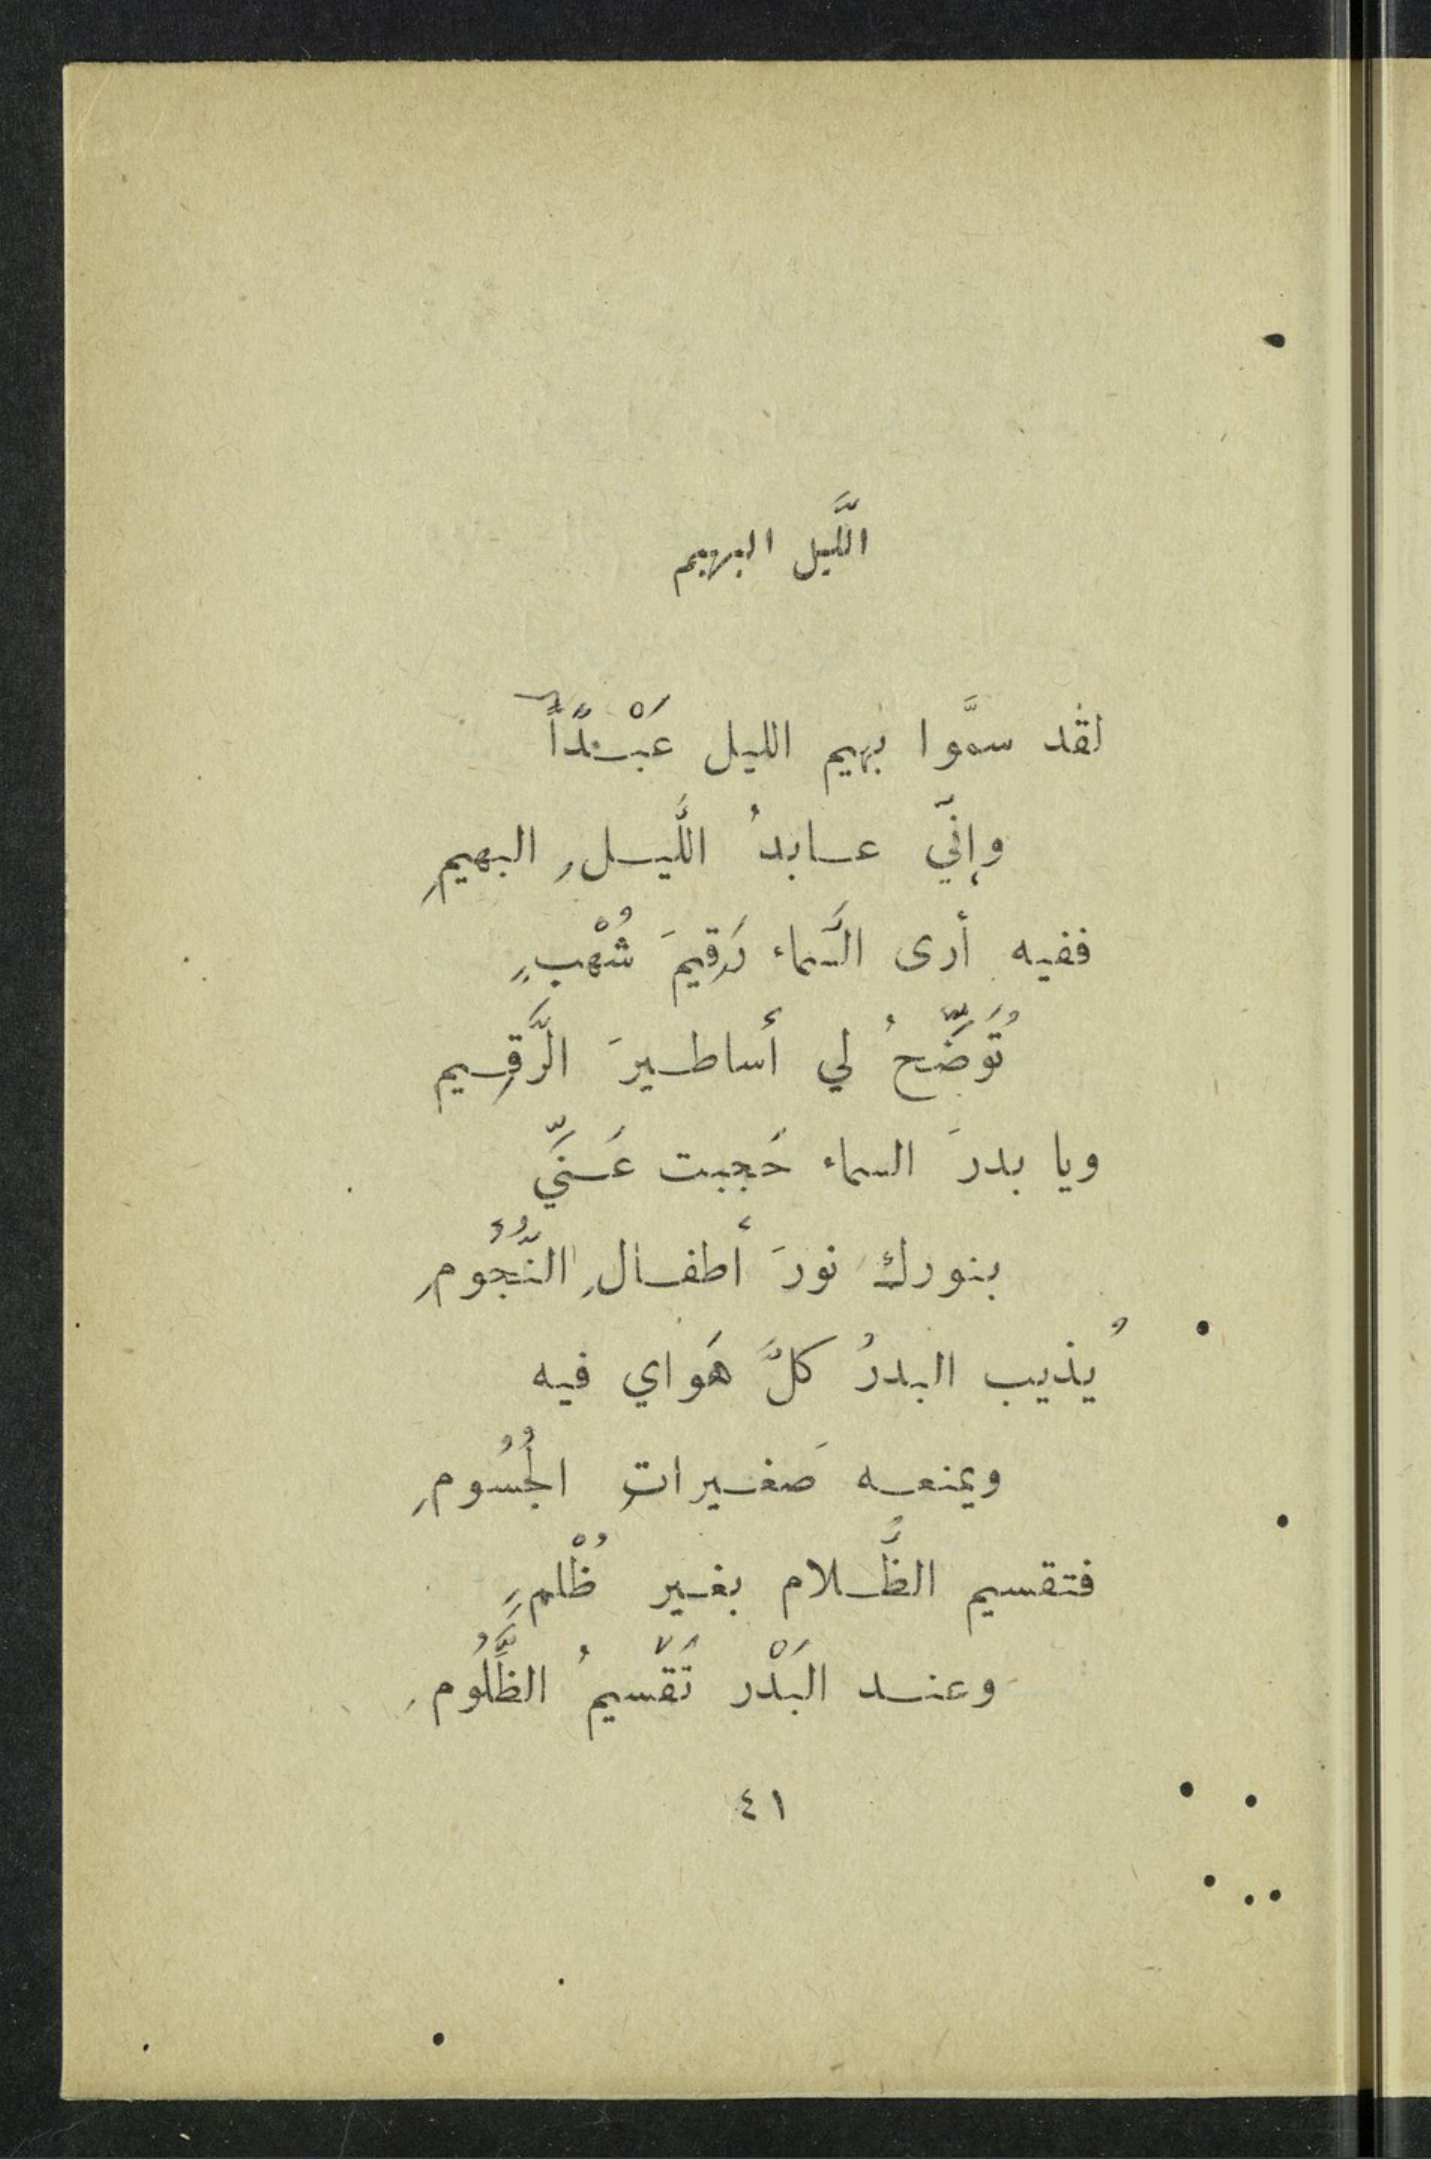 اللَّيل البهيم
لقد سمَّوا بهيم الليل عَبْداً
وإنّي عابدُ اللَّيلِ البهيمِ
ففيه أرى السَّماء رَقيمَ شُهْبٍ
تُوَضِّحُ لي أساطيرَ الرَّقِيم
ويا بدرَ السماء حَجبت عَنّي
بنورك نورَ أطفالِ النُّجُومِ
يُذيب البدرُ كلَّ هَواي فيه
ويمنعه صَغيراتِ الجُسُومِ
فتقسيم الظَّلام بغير ظُلمٍ
وعند البَدْر تَقْسيمُ الظَّلُومِ
٤١